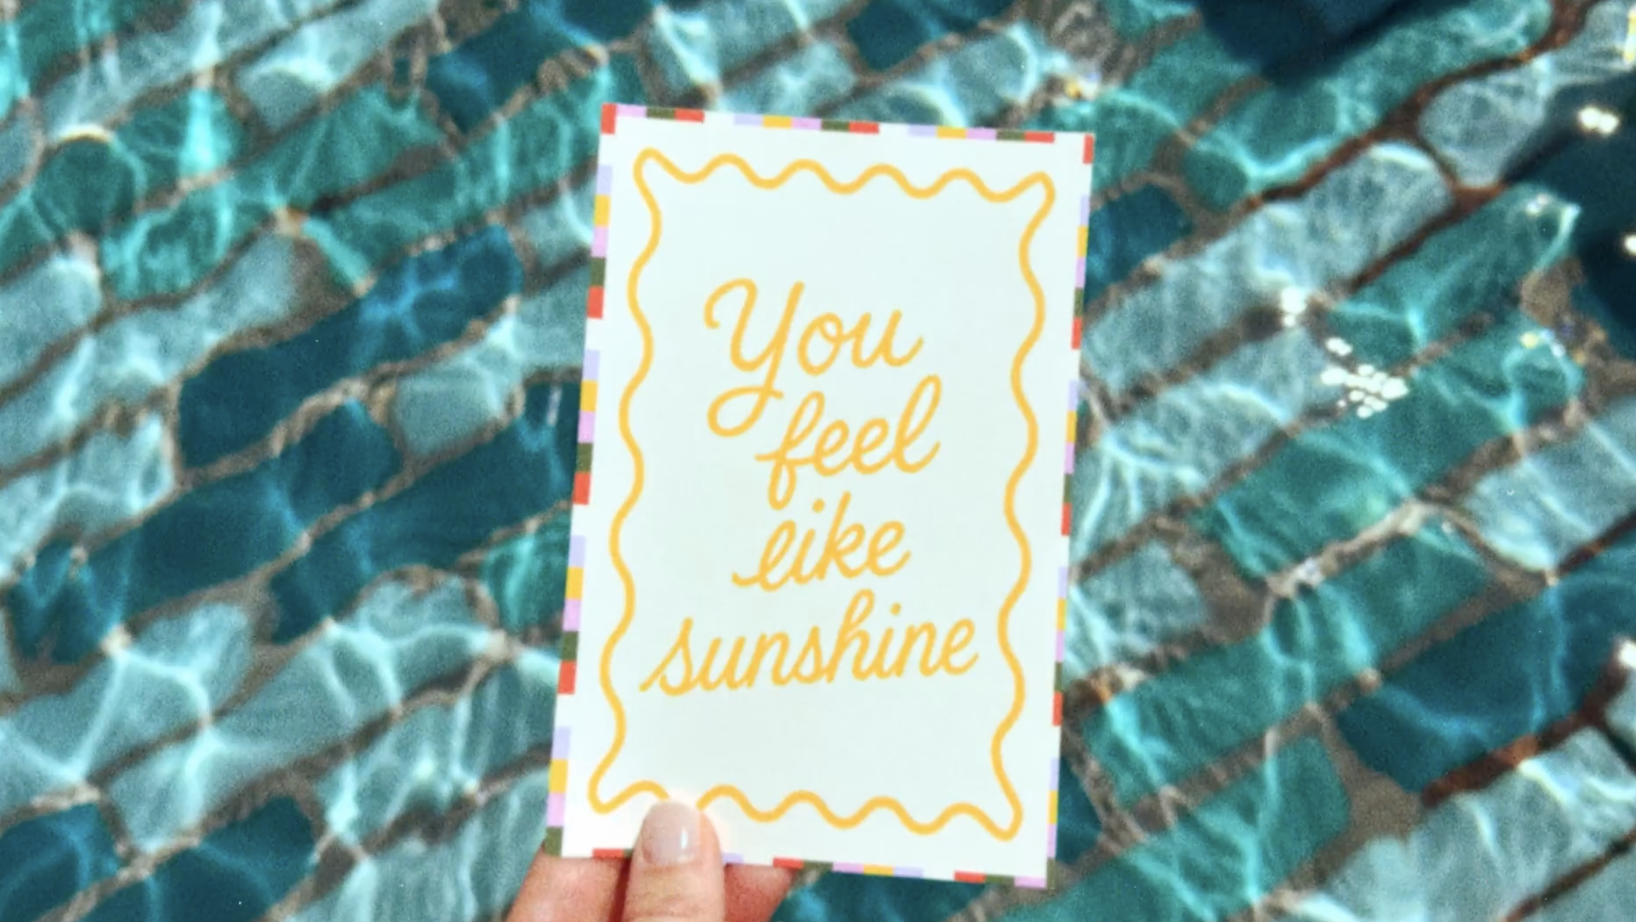 You
feel
like
sunshine